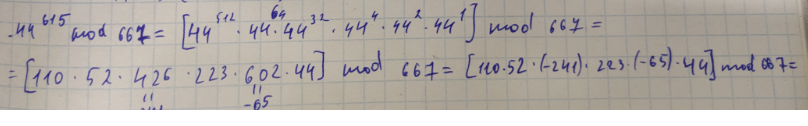 44^615 mod 667 = [44^512 · 44^64 · 44^32 · 44^4 · 44^2 · 44^1] mod 667 =
= [110 · 52 · 426 · 223 · 602 · 44] mod 667 = [110·52·(-241)·223·(-65)·44] mod 667=
-65